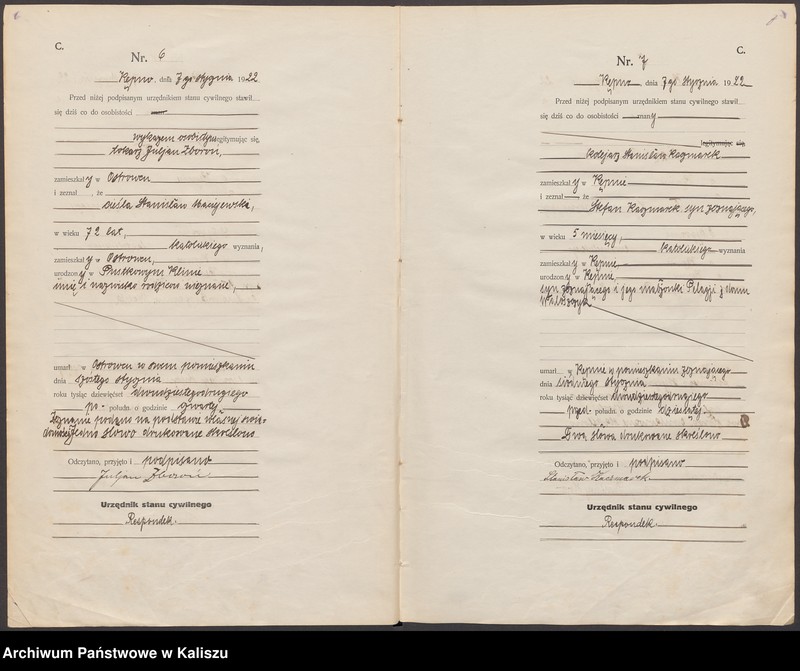 C.
Nr. 6
Kępno, dnia 7go stycznia 1922
Przed niżej podpisanym urzędnikiem stanu cywilnego stawił
się dziś co do osobistości
wykazem osobistym legitymując się,
Juljan Zboroń,
zamieszkały w Ostrowcu
i zeznał, że
cieśla Stanisław
w wieku 72 lat,
katolickiego wyznania,
zamieszkały w Ostrowcu,
urodzony w
imię i nazwisko rodziców nieznane,
umarł w Ostrowcu w swem pomieszkaniu
dnia szóstego stycznia
roku tysiąc dziewięćset dwudziestegodrugiego
po południu o godzinie czwartej
Zeznanie podano na podstawie własnej wiado-
mości. Jedno słowo drukowane skreślono
Odczytano, przyjęto i podpisano
Juljan Zboroń
Urzędnik stanu cywilnego
Respondek.
C.
Nr. 7
Kępno, dnia 7go stycznia 1922
Przed niżej podpisanym urzędnikiem stanu cywilnego stawił
się dziś co do osobistości znany
legitymując się,
kolejarz Stanisław Kaczmarek
zamieszkały w Kępnie
i zeznał że
Stefan Kaczmarek syn zeznającego,
w wieku 5 miesięcy,
katolickiego wyznania
zamieszkały w Kępnie
urodzony w Kępnie,
syn zeznającego i jego małżonki Pelagji z domu
umarł w Kępnie w pomieszkaniu zeznającego
dnia siódmego stycznia
roku tysiąc dziewięćset dwudziestegodrugiego
przed połudn. o godzinie
Dwa słowa drukowane skreślono
Odczytano, przyjęto i podpisano
Stanisław Kaczmarek
Urzędnik stanu cywilnego
Respondek.
Archiwum Państwowe w Kaliszu